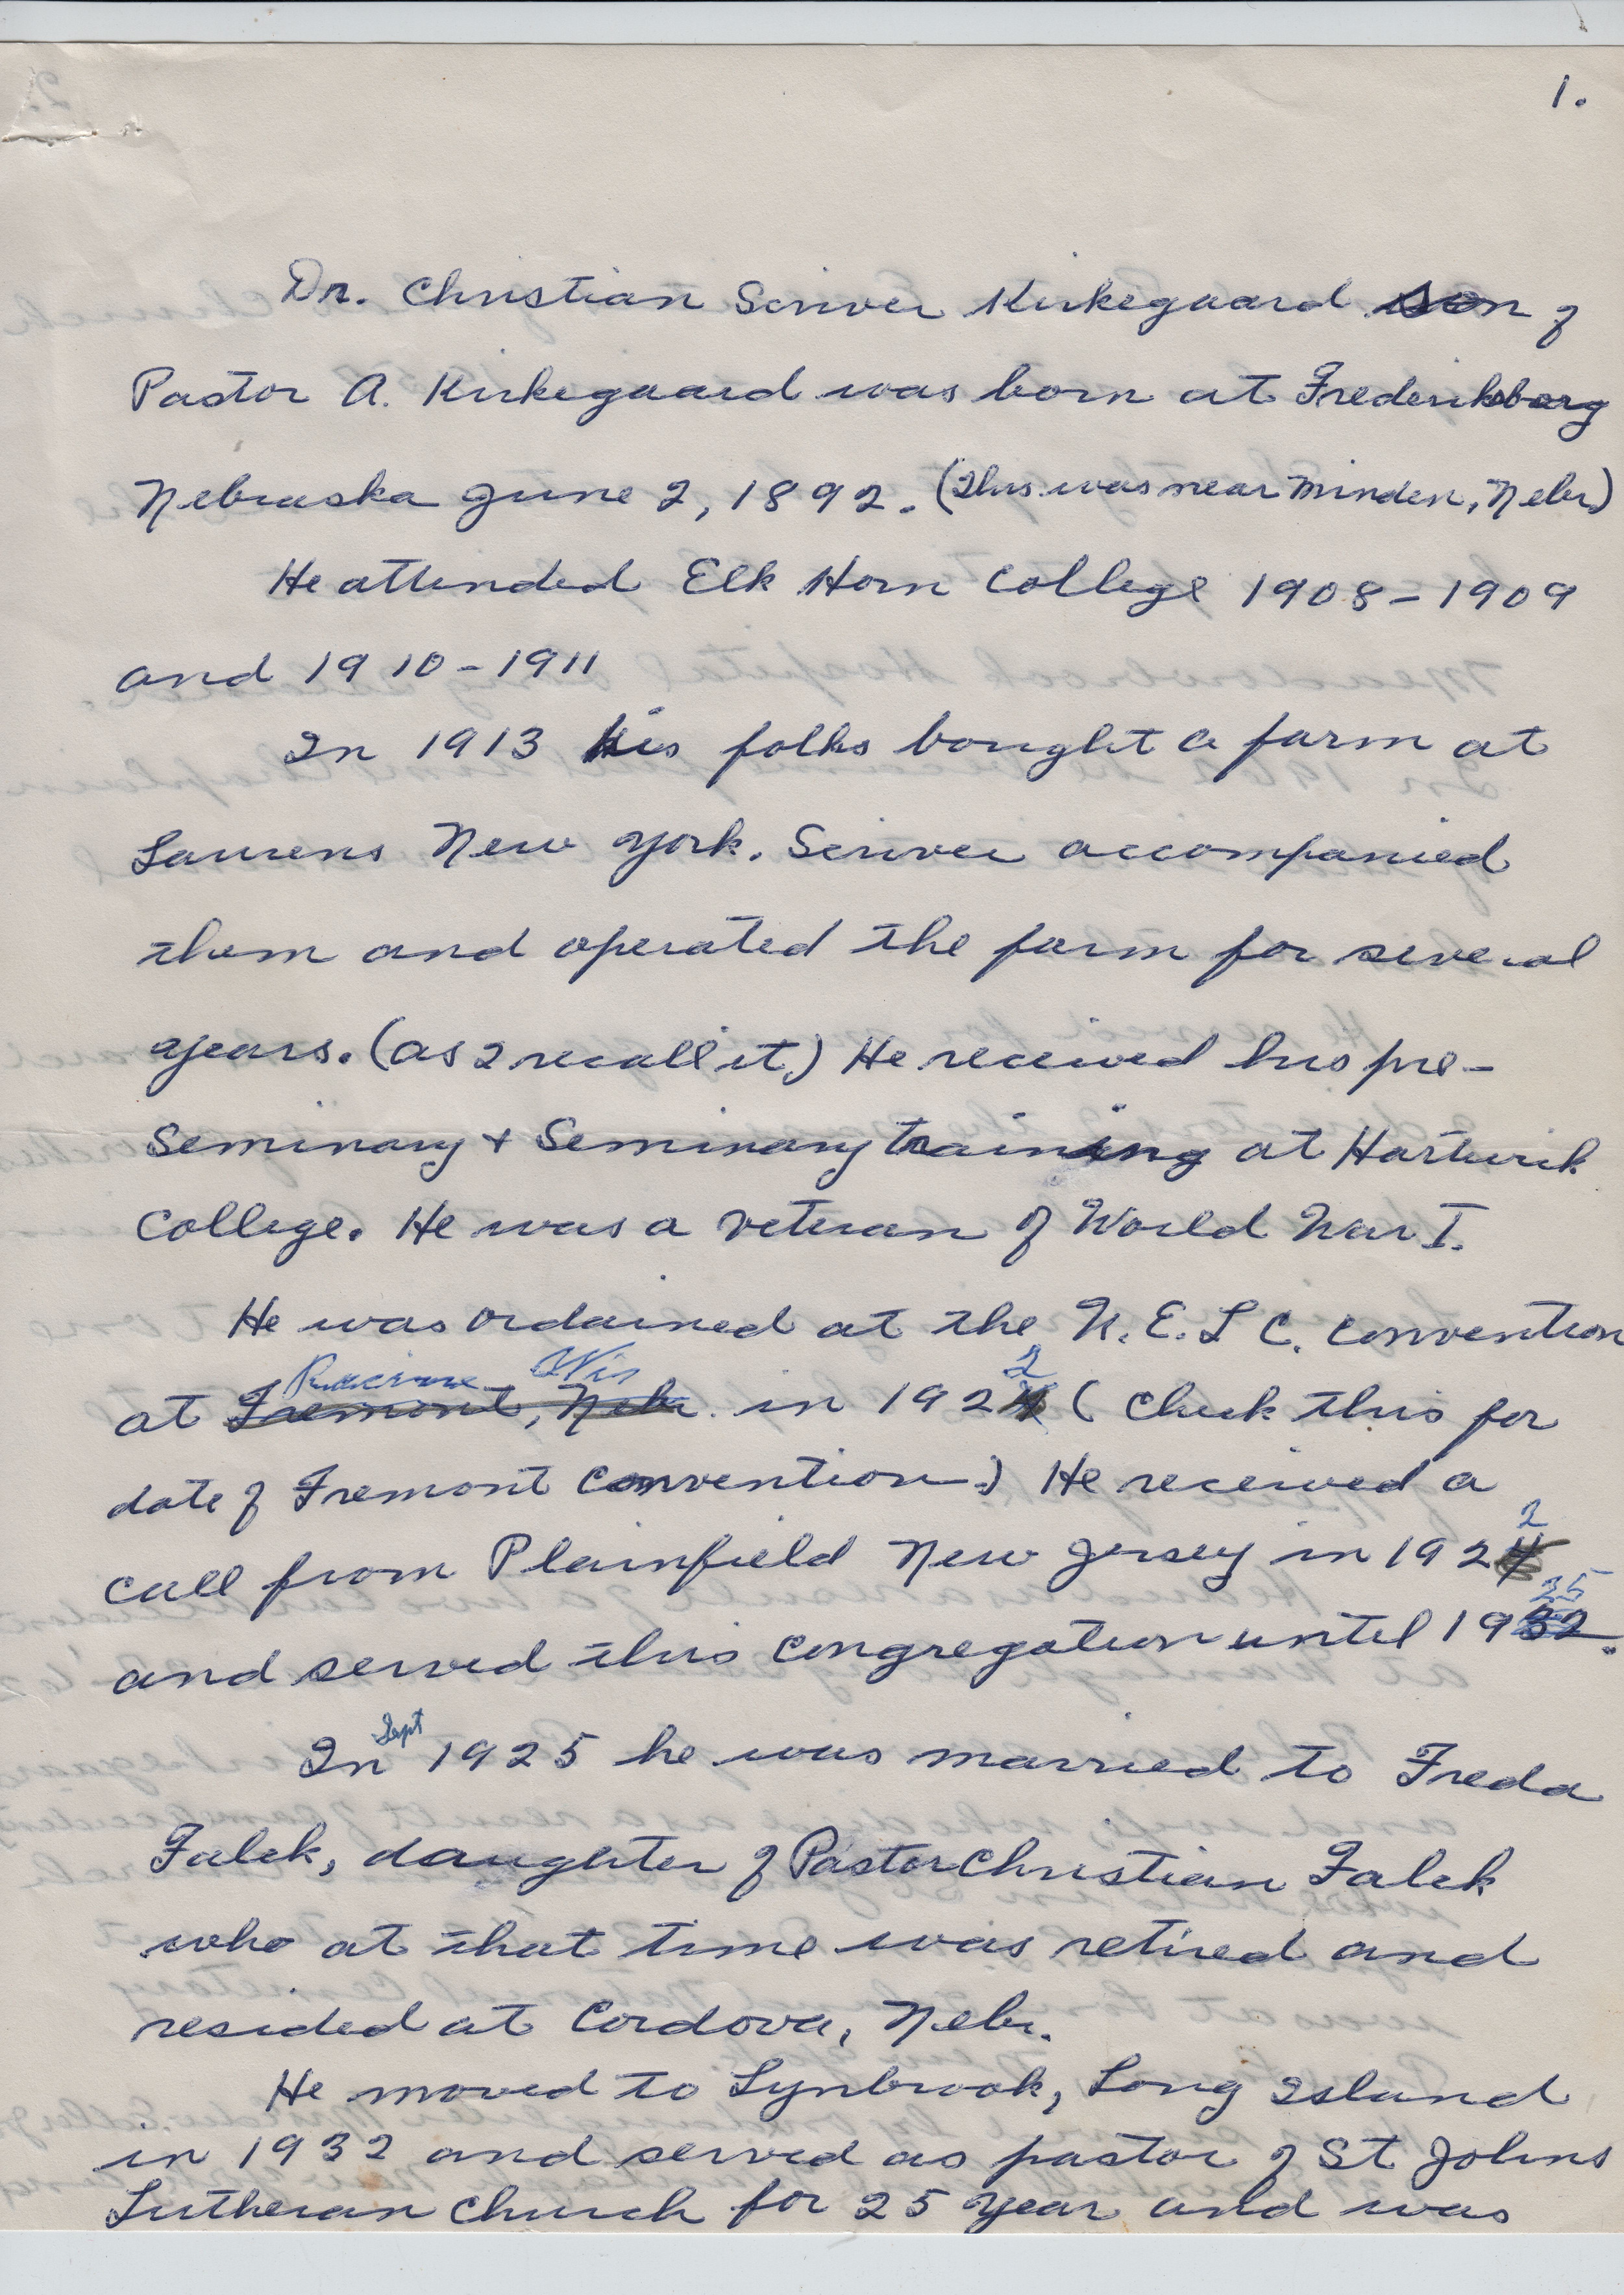 1.
Dr. Christian Scriver Kirkegaard son of
Pastor A. Kirkegaard was born at Frederiksborg
Nebraska June 2, 1892. (This was near Minden, Nebr)
He attended Elk Horn College 1908-1909
and 1910-1911
In 1913 his folks bought a farm at
Laurens New York. Scriver accompanied
them and operated the farm for several
years. (as I recall it) He received his pre-
Seminary + Seminary training at Hartwick
College. He was a veteran of World War I.
He was ordained at the U.E.L.C. convention
Racine Wis 2
at Fremont, Nebr. in 1924 (Check this for
date of Fremont Convention.) He received a
2
call from Plainfield New Jersey in 1924
25
and served this congregation until 1932.
Sept
In 1925 he was married to Freda
Falck, daughter of Pastor Christian Falck
who at that time was retired and
resided at Cordova, Nebr.
He moved to Lynbrook, Long Island
in 1932 and served as pastor of St Johns
Lutheran Church for 25 year and was